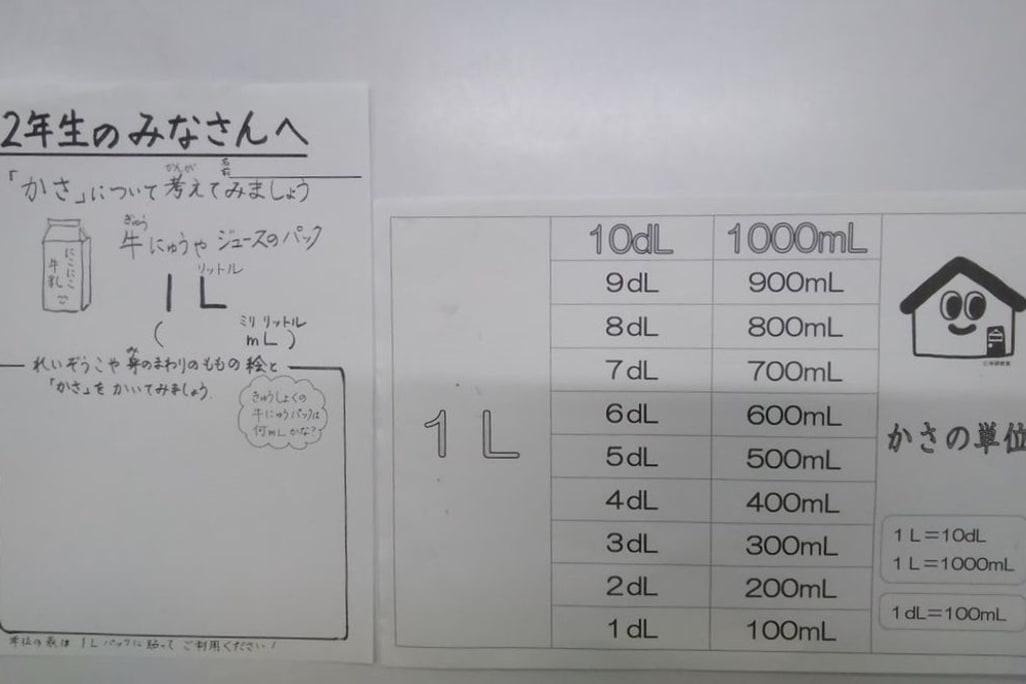 2年生のみなさんへ
名前
「かさ」について考えてみましょう
かんが
にこにこ
牛乳
ぎゅう
牛にゅうや ジュースのパック
リットル
1L
ミリ リットル
( mL )
れいぞうこや身のまわりのものの絵と
み
「かさ」をかいてみましょう。
きゅうしょくの
牛にゅうパックは
何mLかな?
単位の表は 1Lパックに貼って ご利用ください!
1L
10dL 1000mL
9dL 900mL
8dL 800mL
7dL 700mL
6dL 600mL
5dL 500mL
4dL 400mL
3dL 300mL
2dL 200mL
1dL 100mL
かさの単位
1L=10dL
1L=1000mL
1dL=100mL